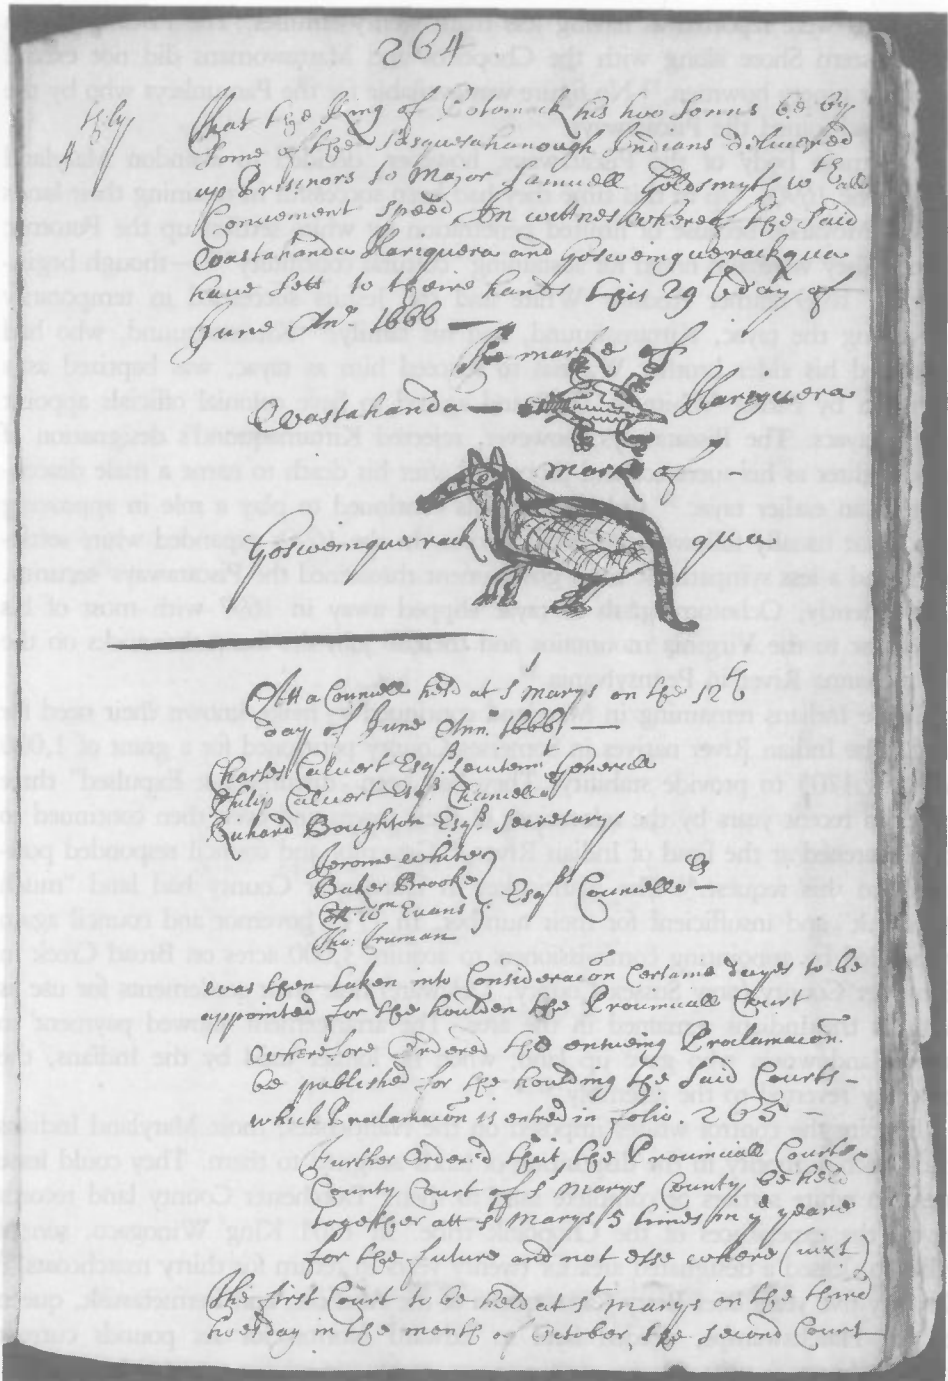 264
4thly
That the King of Potomack his two Sonns be by
some of the Sasquesahanough Indians delivered
up Prisinors to Major Samuell Goldsmyth wth all
Convenient speed In witnes whereof the said
Wastahanda Hariquera and Gosweinquerackqua
have sett to theire hands this 29th day of
June Ano 1666
The marke of
Wastahanda — Hariquera
marke of —
Gosweinquerack qua
Att a Councell held at St Marys on the 12th
day of June Ano 1666 —
Charles Calvert Esqr Leivtennt Generall
Philip Calvert Esqr Chancellor
Richard Boughton Esqr Secretary
Jerome White
Baker Brooke } Esqrs Councellors —
Wm Evans
Tho: Truman
was then taken into Consideracon Certaine dayes to be
appointed for the houlden the Provinciall Court
Wherefore Ordered the ensueing Proclamacon
be published for the houlding the said Courts –
which Proclamacon is entred in folio. 265 –
Further Ordered that the Provinciall Courts &
County Court of St Marys County be held
together att St Marys 5 times in ye yeare
for the future and not else where (vizt)
The first Court to be held at St Marys on the third
twesday in the month of October, the second Court